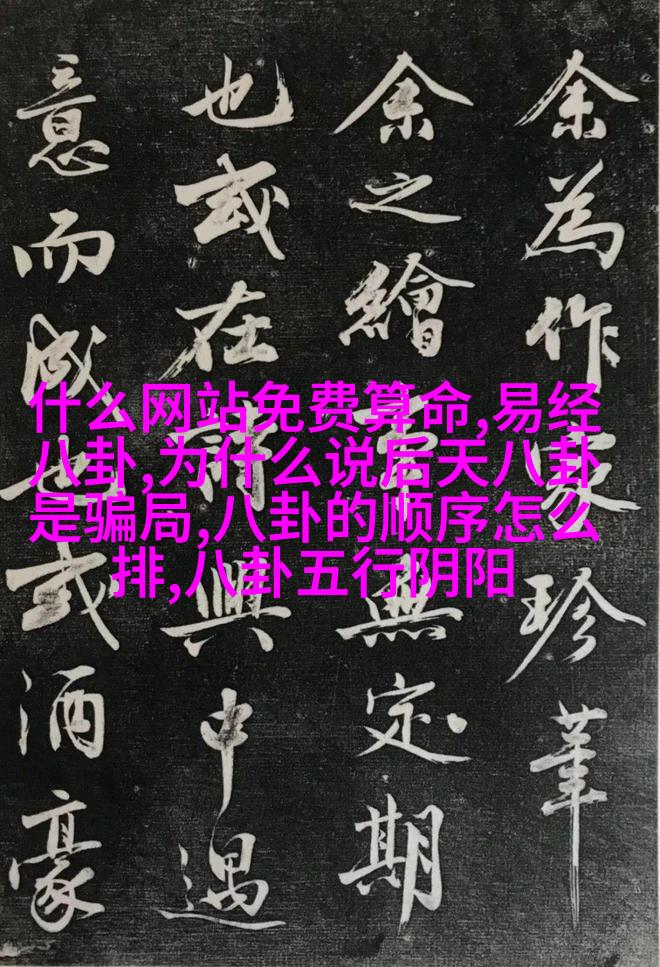 余為作家珍
余之繪無定期
也或在興中遇
意而成也或酒豪
什么网站免费算命,易经
八卦,为什么说后天八卦
是骗局,八卦的顺序怎么
排,八卦五行阴阳